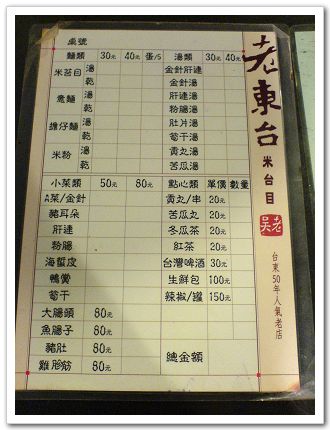 老東台
米台目
老吳
台東50年人氣老店
桌號
麵類 30元 40元 蛋/5 湯類 30元 40元
米苔目 湯 乾
煮麵 湯 乾
擔仔麵 湯 乾
米粉 湯 乾
金針肝連
金針湯
肝連湯
粉腸湯
肚片湯
筍干湯
貢丸湯
苦瓜湯
小菜類 50元 80元 點心類 單價 數量
菜/金針 貢丸/串 20元
豬耳朵 苦瓜丸 20元
肝連 冬瓜茶 20元
粉腸 紅茶 20元
海蜇皮 台灣啤酒 30元
鴨賞 生鮮包 100元
筍干 辣椒/罐 150元
大腸頭 80元
魚腸子 80元
豬肚 80元
雞胗筋 80元
總金額